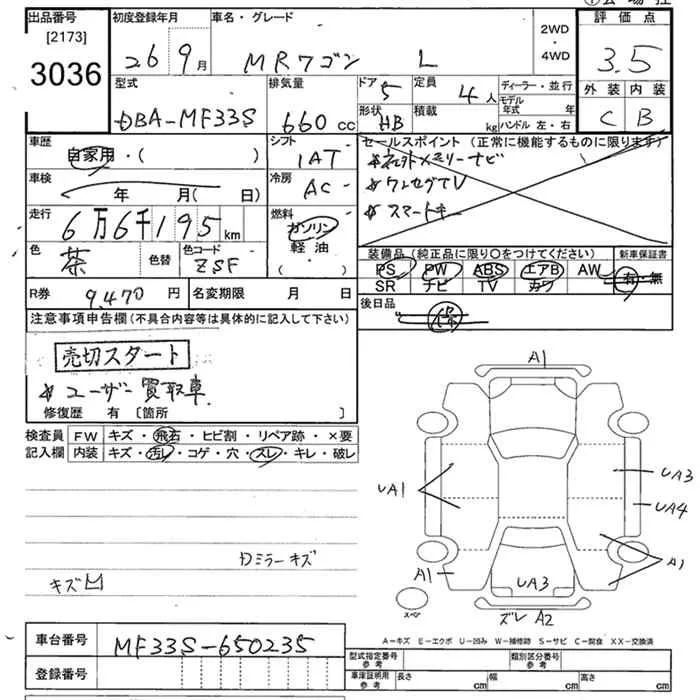 出品番号
[2173]
3036
初度登録年月
26 9月
車名・グレード
MRワゴン L
2WD
・
4WD
評価点
3.5
外装 内装
C B
型式
DBA-MF33S
排気量
660cc
ドア
5
形状
HB
定員
4人
積載
kg
ディーラー・並行
モデル年式 年
ハンドル 左・右
車歴
自家用・( )
シフト
IAT
セールスポイント(正常に機能するものに限ります)
*社外メモリーナビ
*ワンセグTV
*スマートキー
車検
年 月( 日)
冷房
AC
走行
6万6千195km
燃料
ガソリン
軽油
・( )
色
茶
色替
色コード
ZSF
装備品(純正品に限り○をつけてください)
PS PW ABS エアB AW
SR ナビ TV カワ
新車保証書
有・無
R券
9,470円
名変期限 月 日
後日品
保
注意事項申告欄(不具合内容等は具体的に記入して下さい)
売切スタート
*ユーザー買取車
修復歴 有〔箇所 〕
検査員記入欄
FW キズ・飛石・ヒビ割・リペア跡・×要
内装 キズ・汚レ・コゲ・穴・スレ・キレ・破レ
Dミラーキズ
キズ凹
A1
UA1
UA3
UA4
A1
UA3
A1
スペア
ズレA2
A-キズ E-エクボ U-凹み W-補修跡 S-サビ C-腐食 XX-交換済
車台番号
MF33S-650235
登録番号
型式指定番号
参考
類別区分番号
参考
車庫証明用
参考
長さ cm
幅 cm
高さ cm